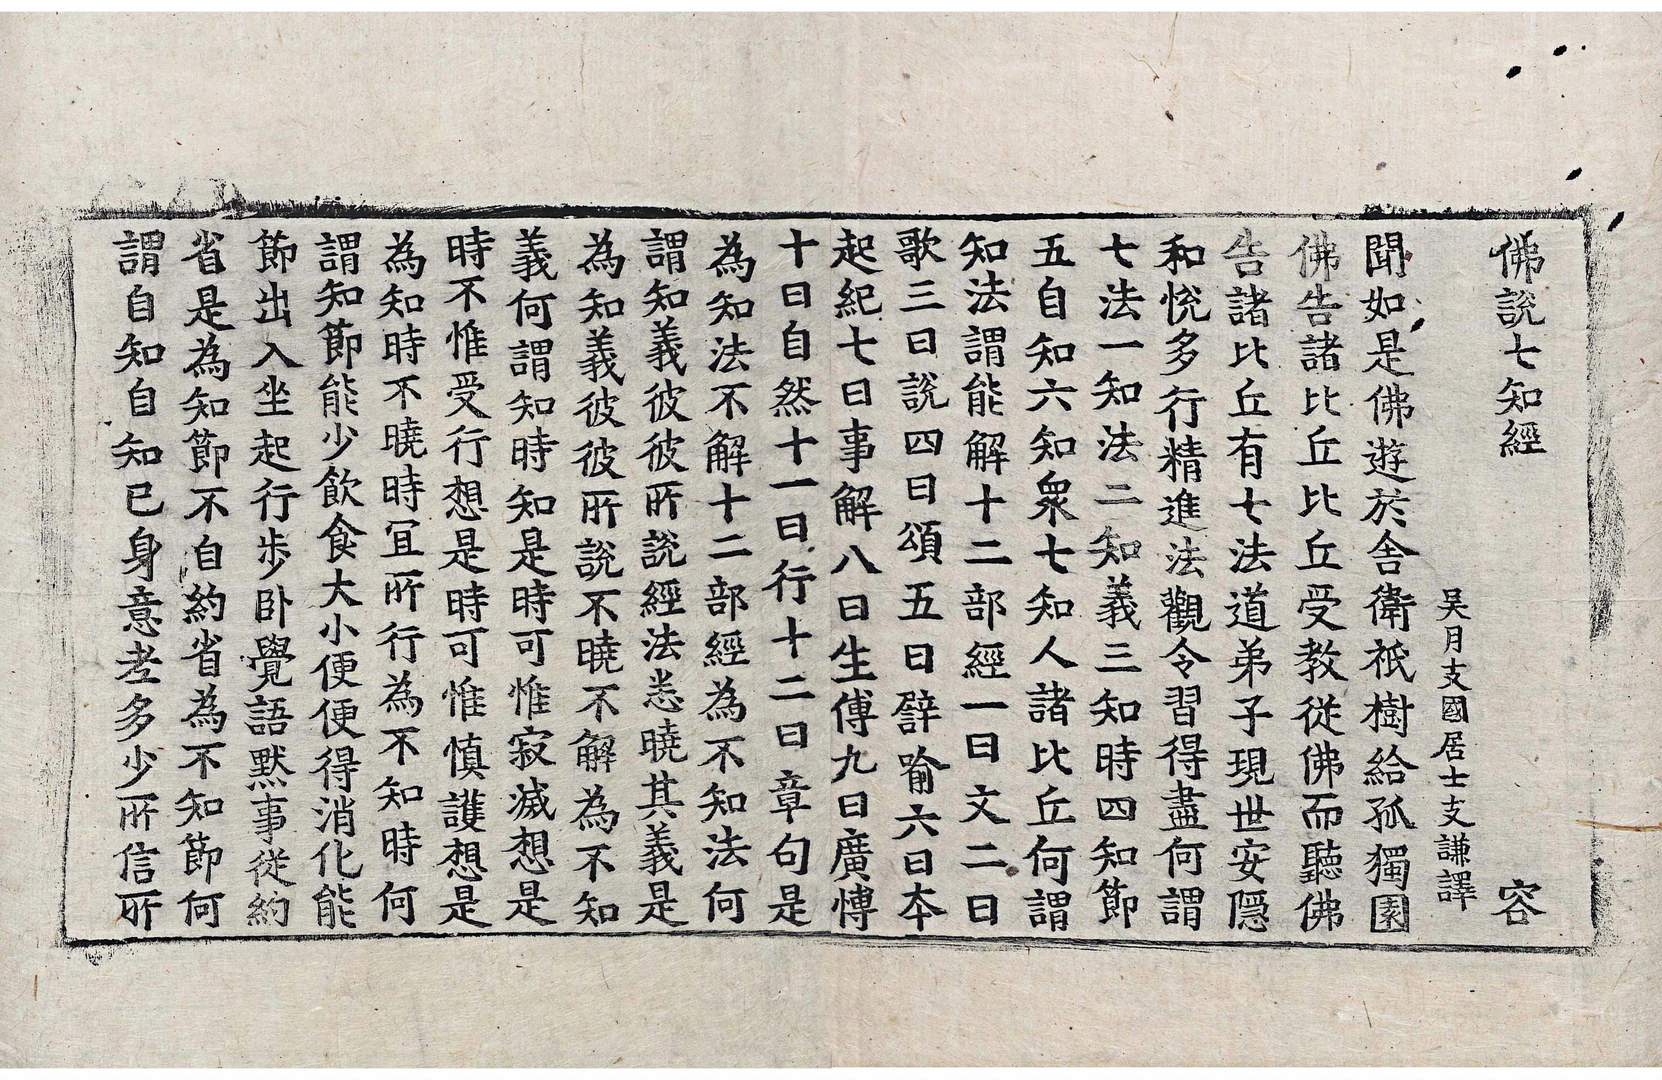 佛說七知經 容
吳月支國居士支謙譯
聞如是佛遊於舍衛祇樹給孤獨園
佛告諸比丘比丘受教從佛而聽佛
告諸比丘有七法道弟子現世安隱
和悅多行精進法觀令習得盡何謂
七法一知法二知義三知時四知節
五自知六知衆七知人諸比丘何謂
知法謂能解十二部經一曰文二曰
歌三曰說四曰頌五曰譬喻六曰本
起紀七曰事解八曰生傳九曰廣博
十曰自然十一曰行十二曰章句是
為知法不解十二部經為不知法何
謂知義彼彼所說經法悉曉其義是
為知義彼彼所說不曉不解為不知
義何謂知時知是時可惟寂滅想是
時不惟受行想是時可惟慎護想是
為知時不曉時宜所行為不知時何
謂知節能少飲食大小便便得消化能
節出入坐起行步卧覺語默事從約
省是為知節不自約省為不知節何
謂自知自知已身意老多少所信所